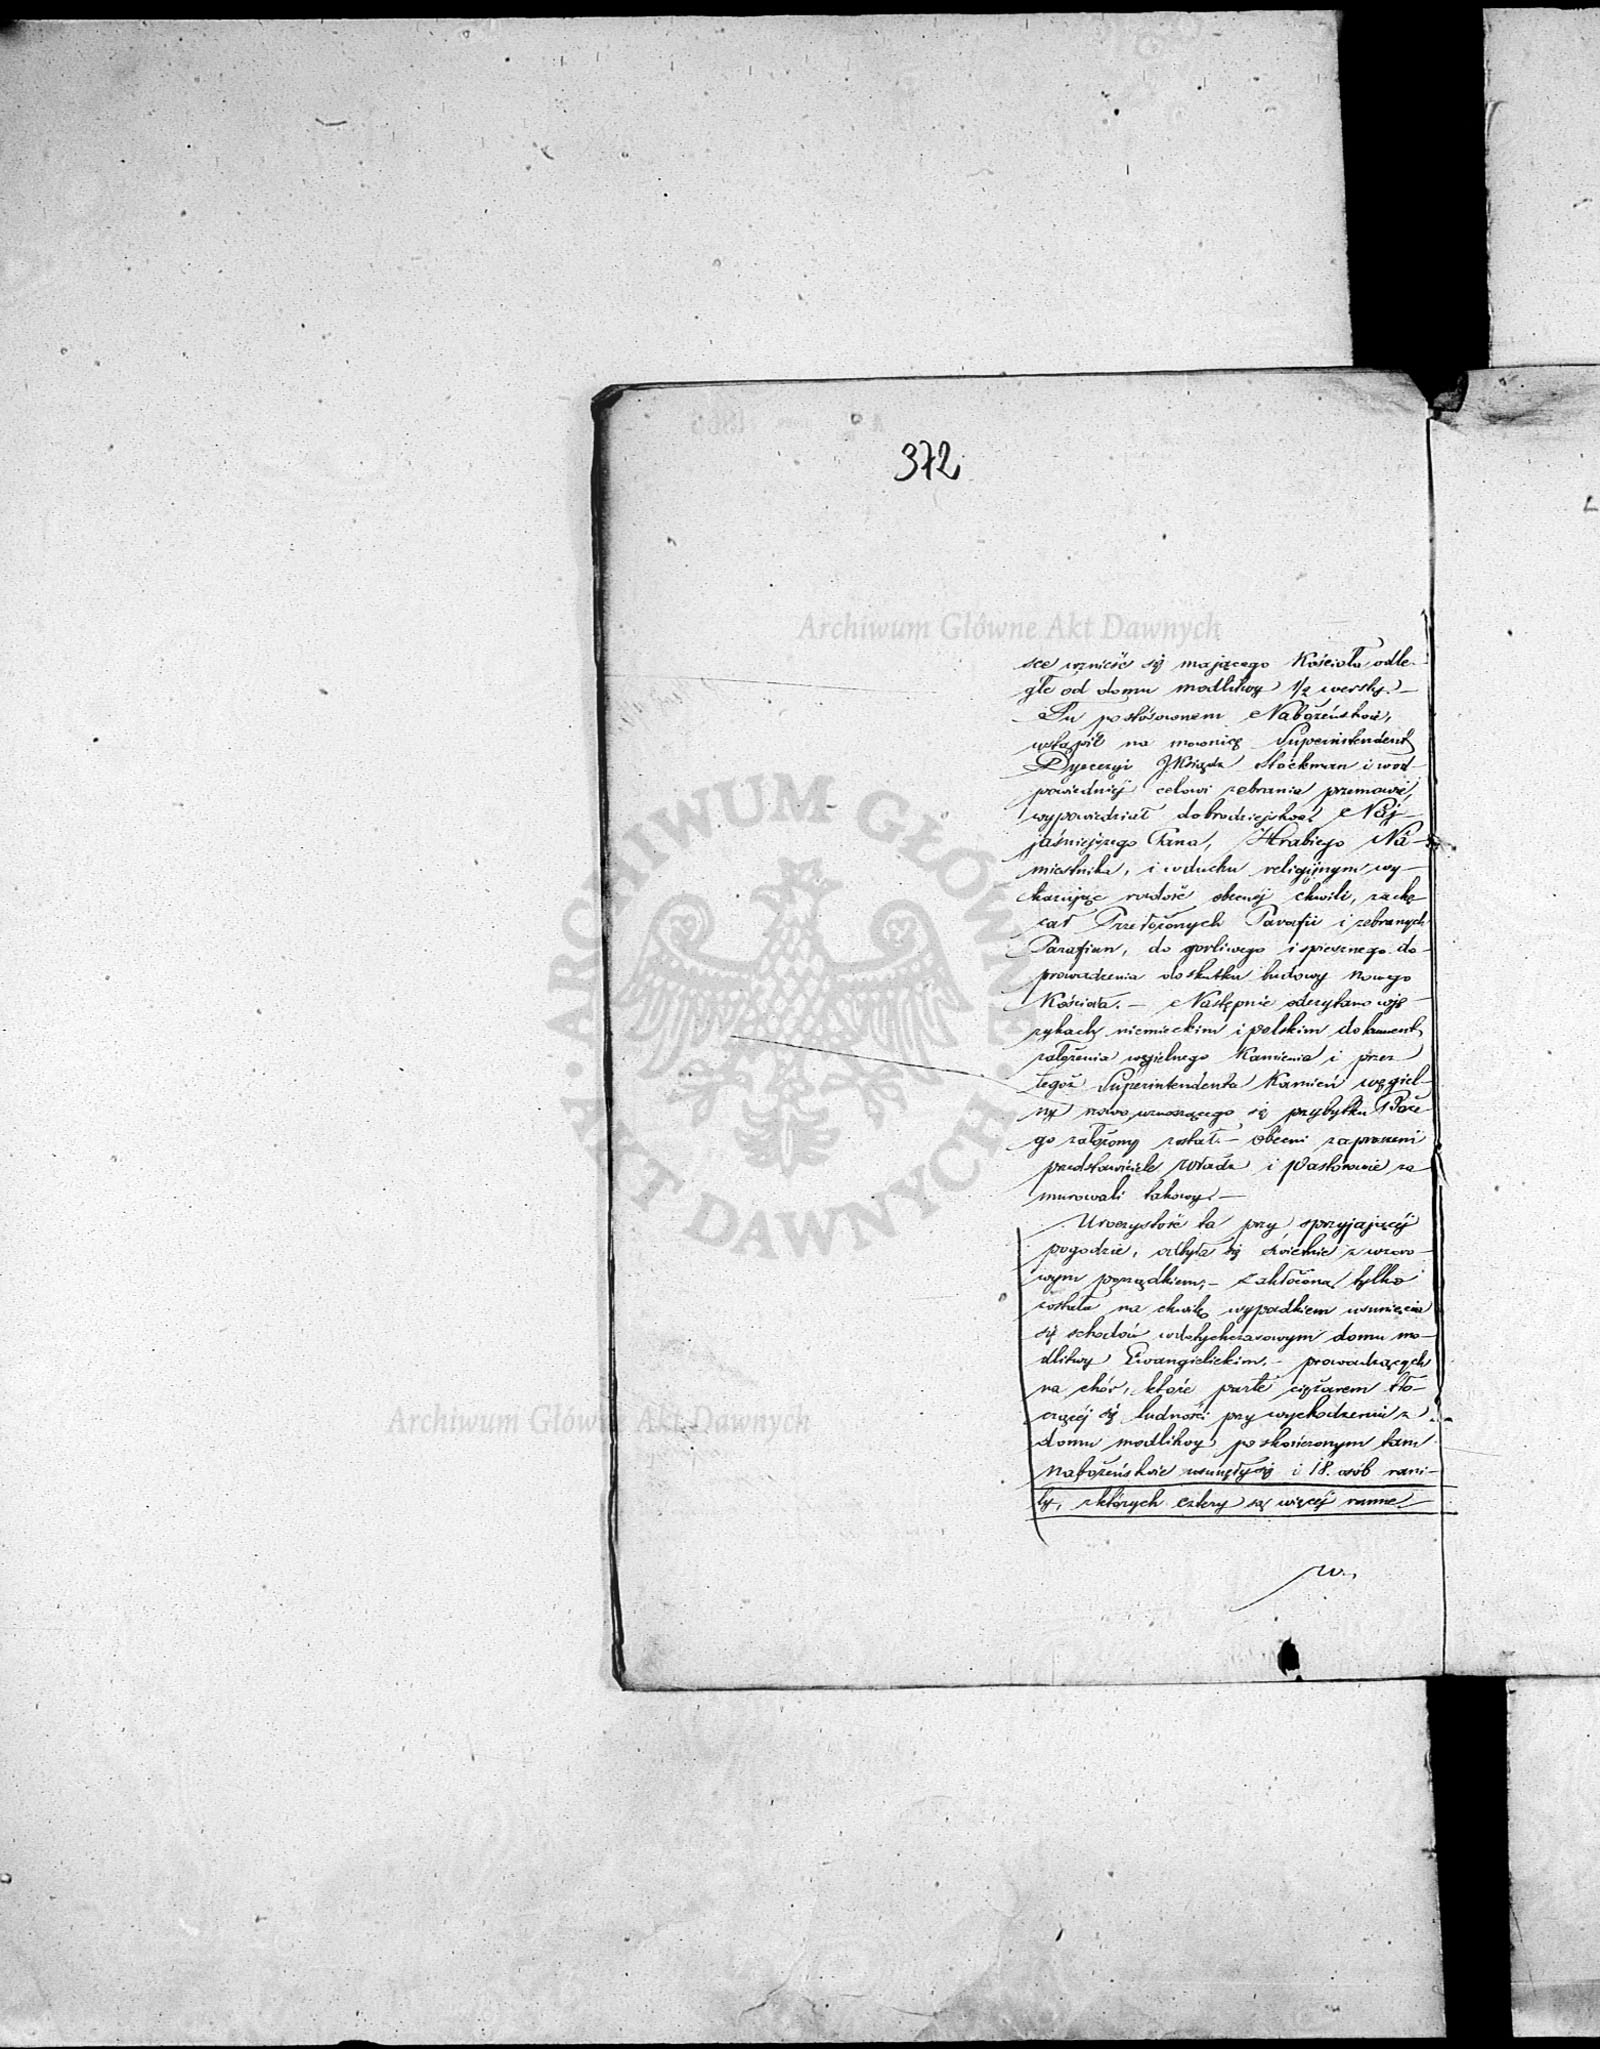 372
sce wznieść się mającego Kościoła odle-
głe od domu modlitwy 1/2 wersty.-
Tu po stósownem Nabożeństwie,
wstąpił na mownicę Superintendent
Dyecezyi J. Ksiądz Stockman i w od-
powiedniéj celowi zebrania przemowie,
wypowiedział dobrodziejstwa Naj-
jaśniejszego Pana, Hrabiego Na-
miestnika, i w duchu religijnym wy-
kazując radość obecnéj chwili, zachę-
cał Przełożonych Parafii i zebranych
Parafian, do gorliwego i spiesznego do-
prowadzenia do skutku budowy nowego
Kościoła.- Następnie odczytano w ję-
zykach niemieckim i polskim dokument
założenia węgielnego Kamienia i przez
tegoż Superintendenta Kamień węgiel-
ny nowo wznoszącego się przybytku Boże-
go założony został.- obecni zaproszeni
przedstawiciele władz i Pastorowie za-
murowali takowy.-
Uroczystość ta przy sprzyjającéj
pogodzie, odbyła się świetnie z wzoro-
wym porządkiem,- zakłócona tylko
została na chwilę wypadkiem usunięcia
się schodów w dotychczasowym domu mo-
dlitwy Ewangielickim,- prowadzących
na chór, które parte ciężarem tło-
czącéj się ludności przy wychodzeniu z
domu modlitwy po skończonym tam
Nabożeństwie usunęły się i 18. osób rani-
ły, z których cztery są więcéj ranne
w.,
Archiwum Główne Akt Dawnych
ARCHIWUM GŁÓWNE
AKT DAWNYCH
Archiwum Główne Akt Dawnych